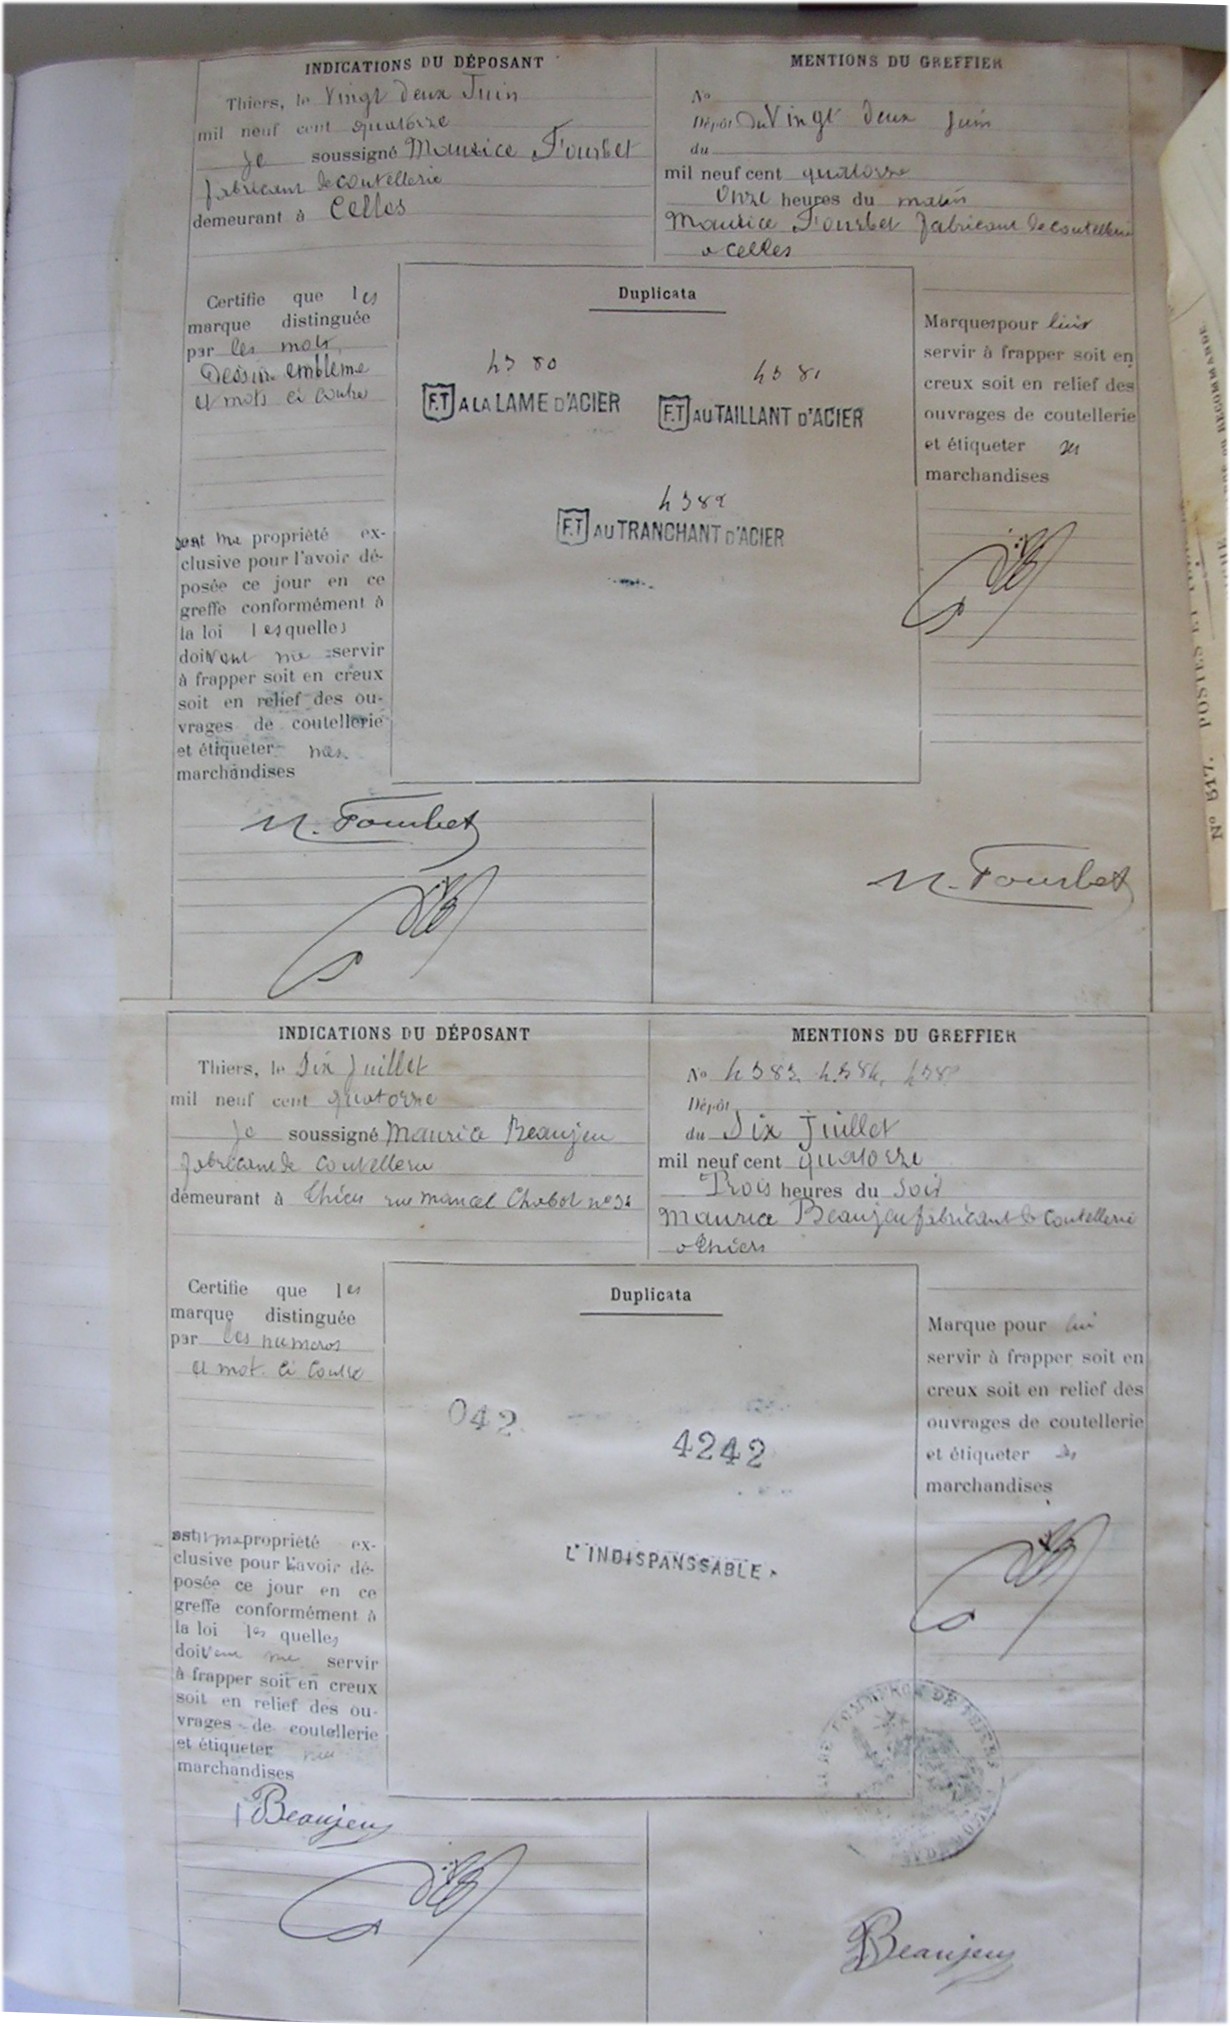 INDICATIONS DU DÉPOSANT
Thiers, le Vingt Deux Juin
mil neuf cent quatorze
Je soussigné Maurice Fourbet
fabricant de coutellerie
demeurant à Celles
MENTIONS DU GREFFIER
No
Dépôt Du Vingt Deux Juin
du
mil neuf cent quatorze
Onze heures du matin
Maurice Fourbet fabricant de coutellerie
a Celles
Certifie que les
marque distinguée
par les mots,
Dessin emblème
et mots ci contre
sont ma propriété ex-
clusive pour l'avoir dé-
posée ce jour en ce
greffe conformément à
la loi lesquelles
doivent me servir
à frapper soit en creux
soit en relief des ou-
vrages de coutellerie
et étiqueter mes
marchandises
Duplicata
4380
F.T A LA LAME D'ACIER
4381
F.T AU TAILLANT D'ACIER
4382
F.T AU TRANCHANT D'ACIER
Marques pour lui
servir à frapper soit en
creux soit en relief des
ouvrages de coutellerie
et étiqueter ses
marchandises
M. Fourbet
M. Fourbet
No 517. POSTES ET
RECOMMANDÉ
INDICATIONS DU DÉPOSANT
Thiers, le Six Juillet
mil neuf cent quatorze
Je soussigné Maurice Beaujeu
fabricant de coutellerie
demeurant à Thiers rue Mancel Chabot no
MENTIONS DU GREFFIER
No 4383 4384
Dépôt
du Six Juillet
mil neuf cent quatorze
Trois heures du Soir
Maurice Beaujeu fabricant de coutellerie
a Thiers
Certifie que les
marque distinguée
par les numeros
et mot ci contre
propriété ex-
clusive pour l'avoir dé-
posée ce jour en ce
greffe conformément à
la loi les quelles
doivent me servir
à frapper soit en creux
soit en relief des ou-
vrages de coutellerie
et étiqueter mes
marchandises
Duplicata
042
4242
L'INDISPANSSABLE
Marque pour lui
servir à frapper soit en
creux soit en relief des
ouvrages de coutellerie
et étiqueter
marchandises
DE COMMERCE DE THIERS
Beaujeu
Beaujeu